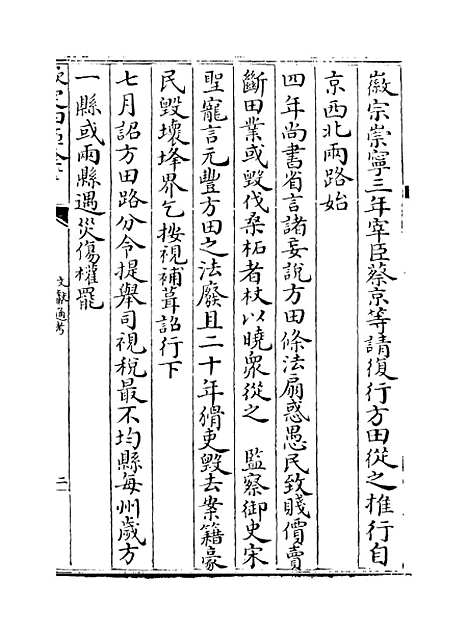 徽宗崇寧三年宰臣蔡京等請復行方田從之推行自
京西北兩路始
四年尚書省言諸妄說方田條法扇惑愚民致賤價賣
斷田業或毀伐桑柘者杖以曉衆從之　監察御史宋
聖寵言元豐方田之法廢且二十年猾吏毀去案籍豪
民毀壞埄界乞按視補葺詔行下
七月詔方田路分令提舉司視稅最不均縣每州歲方
一縣或兩縣遇災傷權罷
文獻通考
二